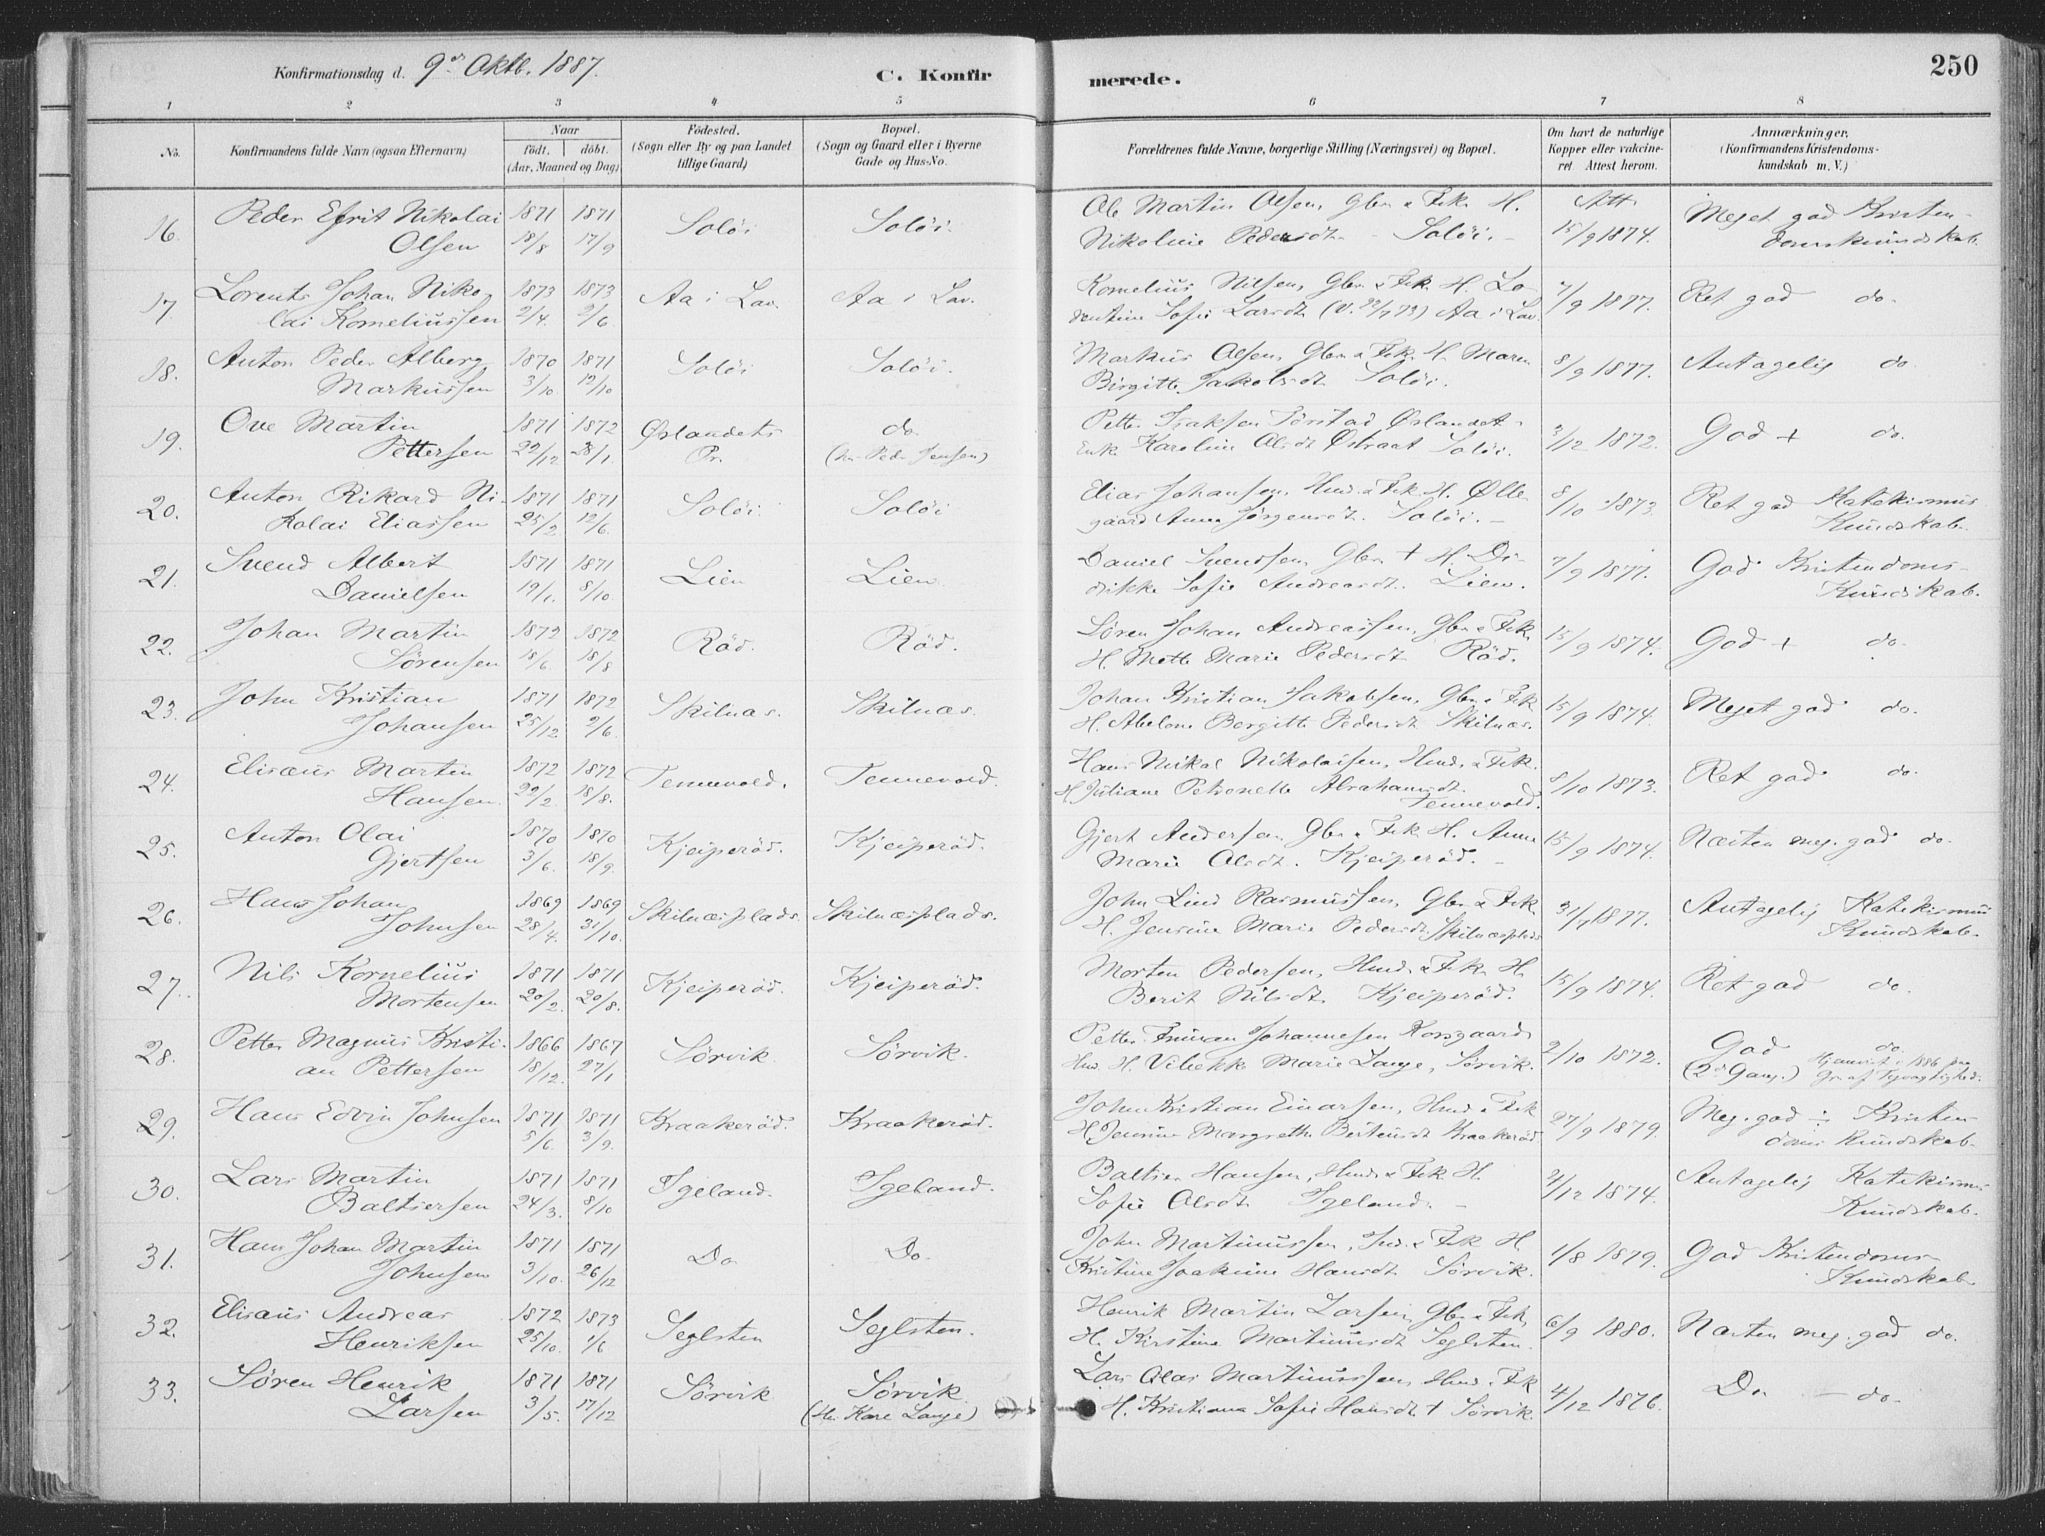 Konfirmationsdag d. 9de Oktb. 1887. C. Konfir merede. 250
1 2 3 4 5 6 7 8
No. Konfirmandens fulde Navn (ogsaa Efternavn) Naar født. døbt. (Aar, Maaned og Dag) Fødested. (Sogn eller By og paa Landet tillige Gaard) Bopæl. (Sogn og Gaard eller i Byerne Gade og Hus-No. Forældrenes fulde Navne, borgerlige Stilling (Næringsvei) og Bopæl. Om havt de naturlige Kopper eller vakcineret Attest herom. Anmærkninger. (Konfirmandens Kristendomskundskab m. V.)
16. Peder Efrit Nikolai 1871 1871 Soløi Soløi. Ole Martin Olsen, Gbr & Fsk. H. Att. Meget god Kristen-
Olsen 18/8 17/9 Nikoline Pedersdt. Soløi. 15/9 1874. domskundskab.
17. Lorents Johan Niko- 1873 1873 Aa i Lav. Aa i Lav. Kornelius Nilsen, Gbr & Fsk. H. Lo- 7/9 1877. Ret god do.
lai Korneliussen 2/4. 2/6. Sofie Larsdt. Aa i Lav.
18. Anton Peder Alberg 1870 1871 Soløi Soløi. Markus Olsen, Gbr & Fsk. H. Maren 8/9 1877. Antagelig do.
Markussen 3/10. 12/10 Birgitte Jakobsdt. Soløi.
19. Ove Martin 1871 1872 Ørlandets do. Petter Isaksen Ørlandet 3/12 1872. God + do.
Pettersen 22/12 28/1. Pr. (hr. Peder Jensen) Enk. Karoline Olsdt. Østraat Soløi.
20. Anton Rikard Ni- 1871 1871 Soløi. Soløi Elias Johansen, Hmd. & Fsk. H. Ølle- 8/10 1873 Ret god Katekismus
kolai Eliassen 25/2. 12/6. gaard Anna Jørgensdt. Soløi. Kundskab.
21. Svend Albert 1871 1871 Lien Lien. Daniel Svendsen Gbr + H. Di- 7/9 1877. God Kristendoms-
Danielsen 19/1. 8/10. drikke Sofie Andreasdt. Lien. Kundskab.
22. Johan Martin 1872 1872 Rød. Rød. Søren Johan Andreassen, Gbr & Fsk. 15/9 1874. God + do.
Sørensen 18/6. 18/8 H. Mette Marie Pedersdt. Rød.
23. John Kristian 1871 1872 Skilnæs. Skilnæs. Johan Kristian Jakobsen, Gbr & Fsk 15/9 1874. Meget god do.
Johansen 25/12. 2/6. H. Abelone Bergitte Pedersdt. Skilnæs.
24. Elisæus Martin 1872 1872 Tennevold. Tennevold. Hans Nikal Nikolaisen, Hmd. & Fsk. 8/10 1873. Ret god do.
Hansen. 22/2. 18/8. H. Juliane Petronelle Abrahamsdt. Tennevold.
25. Anton Olai 1870 1870 Kjeiperød. Kjeiperød. Gjert Andersen, Gbr & Fsk. H. Anne 15/9 1874. Næsten meg. god do.
Gjertsen 3/6. 18/9. Marie Olsdt. Kjeiperød.
26. Hans Johan 1869 1869 Skilnæsplads. Skilnæsplads. John Lind Rasmussen, Gbr & Fsk. 31/7 1877. Antagelig Katekismus
Johnsen 28/4. 31/10. H. Jensine Marie Pedersdt. Skilnæsplads Kundskab.
27. Nils Kornelius 1871 1871 Kjeiperød. Kjeiperød. Morten Pedersen, Hmd. & Fsk. H. 15/9 1874. Ret god do.
Mortensen 20/2. 20/8. Berit Nilsdt. Kjeiperød.
28. Petter Magnus Kristi- 1866 1867 Sørvik Sørvik. Petter Johannesen Korsgaard 2/10 1872. God do.
an Pettersen 18/12. 27/1 Hmd. H. Vibekke Marie Lange, Sørvik. (2den Gang.) Hjemvist i 1886 paa Gr. af Uvægtighed.
29. Hans Edvin Johnsen 1871 1871 Kraakerød. Kraakerød. John Kristian Einarsen, Hmd. & Fsk 27/9 1879. Meg. god ÷ Kristen-
5/6. 3/9. H. Jensine Margrethe Berteusdt. Kraakerød. doms Kundskab.
30. Lars Martin 1871 1871 Igeland. Igeland. Baltser Hansen, Hmd. & Fsk H. 2/12 1874. Antagelig Katekismus
Baltsersen 24/3. 8/10 Sofie Olsdt. Igeland. Kundskab.
31. Hans Johan Martin 1871 1871 Do Do. John Martinussen, Ind. & Fsk H. 1/8 1879. God Kristendoms-
Johnsen 3/10. 26/12 Kristine Joakime Hansdt. Sørvik. Kundskab.
32. Elisæus Andreas 1872 1873 Seglsten Seglsten. Henrik Martin Larsen, Gbr & Fsk, 6/9 1880. Næsten meg. god do.
Henriksen 25/10. 1/6 H. Kirstine Martinusdt. Seglsten.
33. Søren Henrik 1871 1871 Sørvik Sørvik Lars Olai Martinussen, Hmd. & Fsk 4/12 1876. Do — do.
Larsen 3/5. 17/12 (Hr. Kare Lange) H. Kristiana Sofie Hansdt. + Sørvik.